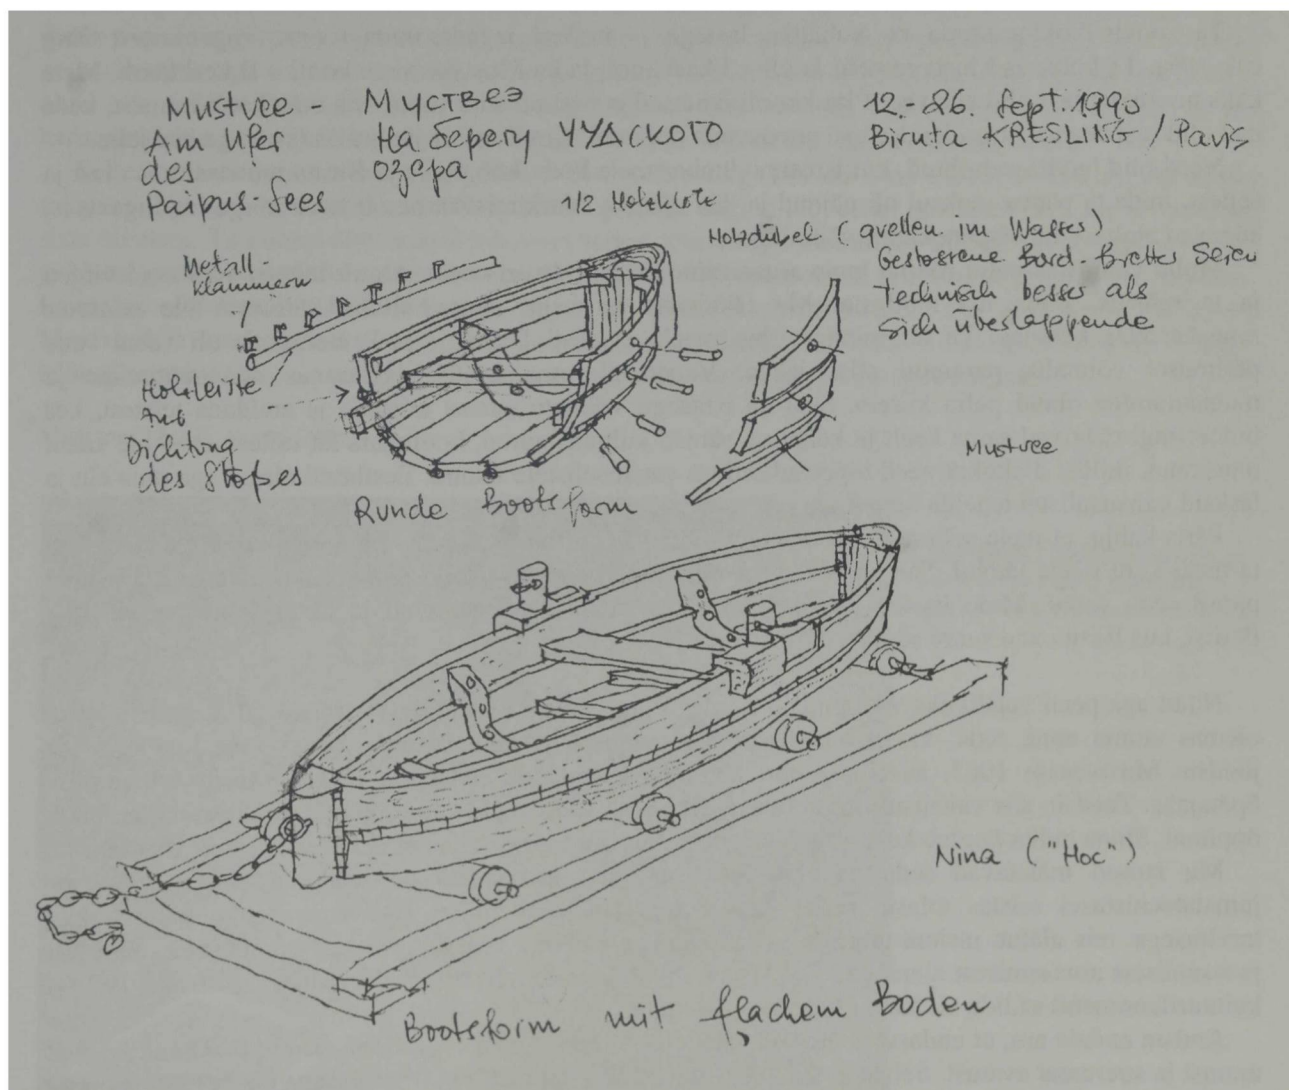 Mustvee - Муствеэ
Am Ufer
des
Paipus-Sees
На берегу ЧУДСКОГО
озера
12. 86. Sept. 1990
Biruta KRESLING / Paris
1/2 Holzklotz
Holzdübel (quellen im Wasser)
Gestossene Bord-Bretter seien
technisch besser als
sich überlappende
Metall-
klammern
Holzleiste
zur
Dichtung
des Stoßes
Mustvee
Runde Bootsform
Nina ("Hoc")
Bootsform mit flachem Boden